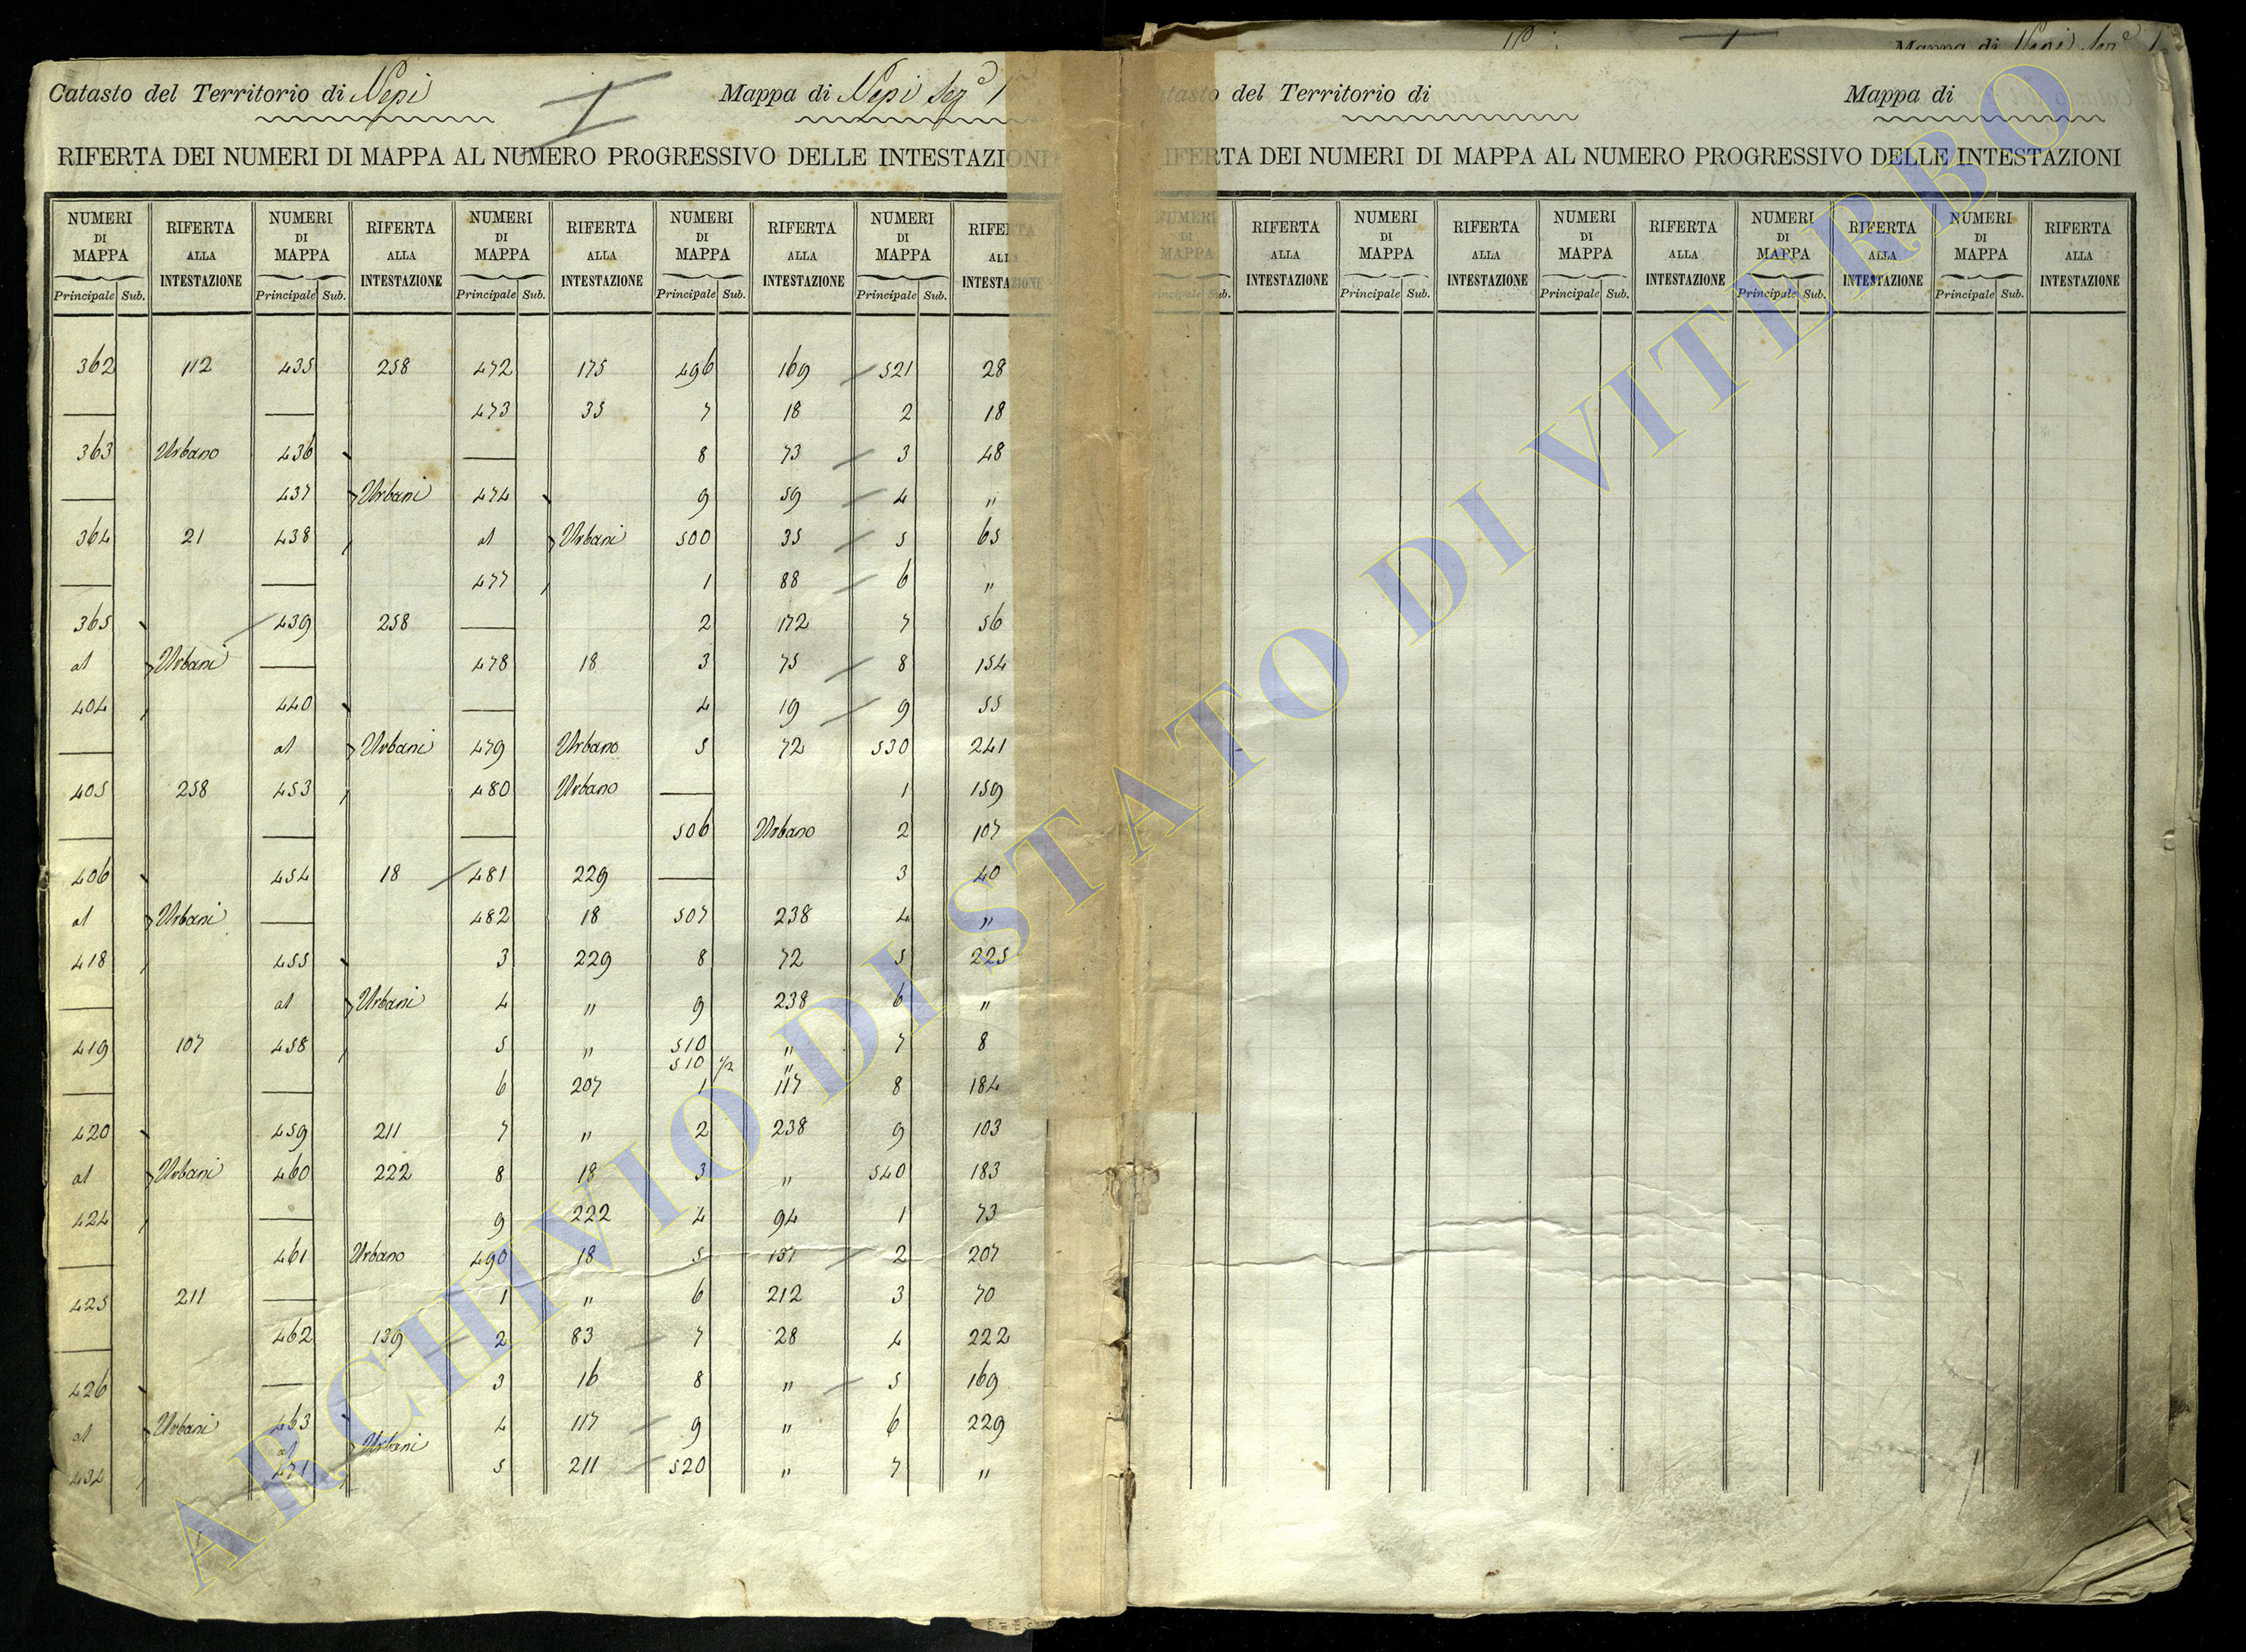 Catasto del Territorio di Nepi I Mappa di Nepi Sez.e 1
RIFERTA DEI NUMERI DI MAPPA AL NUMERO PROGRESSIVO DELLE INTESTAZIONI
NUMERI DI MAPPA Principale Sub. RIFERTA ALLA INTESTAZIONE NUMERI DI MAPPA Principale Sub. RIFERTA ALLA INTESTAZIONE NUMERI DI MAPPA Principale Sub. RIFERTA ALLA INTESTAZIONE NUMERI DI MAPPA Principale Sub. RIFERTA ALLA INTESTAZIONE NUMERI DI MAPPA Principale Sub. RIFERTA ALLA INTESTAZIONE
362 112 435 258 472 175 496 169 521 28
473 35 7 18 2 18
363 Urbano 436 8 73 3 48
437 Urbani 474 9 59 4 "
364 21 438 al Urbani 500 35 5 65
477 1 88 6 "
365 439 258 2 172 7 56
al Urbani 478 18 3 75 8 154
404 440 4 19 9 55
al Urbani 479 Urbano 5 72 530 241
405 258 453 480 Urbano 1 159
506 Urbano 2 107
406 454 18 481 229 3 40
al Urbani 482 18 507 238 4 "
418 455 3 229 8 72 5 225
al Urbani 4 " 9 238 6 "
419 107 458 5 " 510 " 7 8
510 1/2 "
6 207 1 117 8 184
420 459 211 7 " 2 238 9 103
al Urbani 460 222 8 18 3 " 540 183
424 9 222 4 94 1 73
461 Urbano 490 18 5 137 2 207
425 211 1 " 6 212 3 70
462 139 2 83 7 28 4 222
426 3 16 8 " 5 169
al Urbani 463 4 117 9 " 6 229
al Urbani
434 471 5 211 520 " 7 "
Mappa di Nepi Sez.e 1
Catasto del Territorio di Mappa di
RIFERTA DEI NUMERI DI MAPPA AL NUMERO PROGRESSIVO DELLE INTESTAZIONI
NUMERI DI MAPPA Principale Sub. RIFERTA ALLA INTESTAZIONE NUMERI DI MAPPA Principale Sub. RIFERTA ALLA INTESTAZIONE NUMERI DI MAPPA Principale Sub. RIFERTA ALLA INTESTAZIONE NUMERI DI MAPPA Principale Sub. RIFERTA ALLA INTESTAZIONE NUMERI DI MAPPA Principale Sub. RIFERTA ALLA INTESTAZIONE
ARCHIVIO DI STATO DI VITERBO